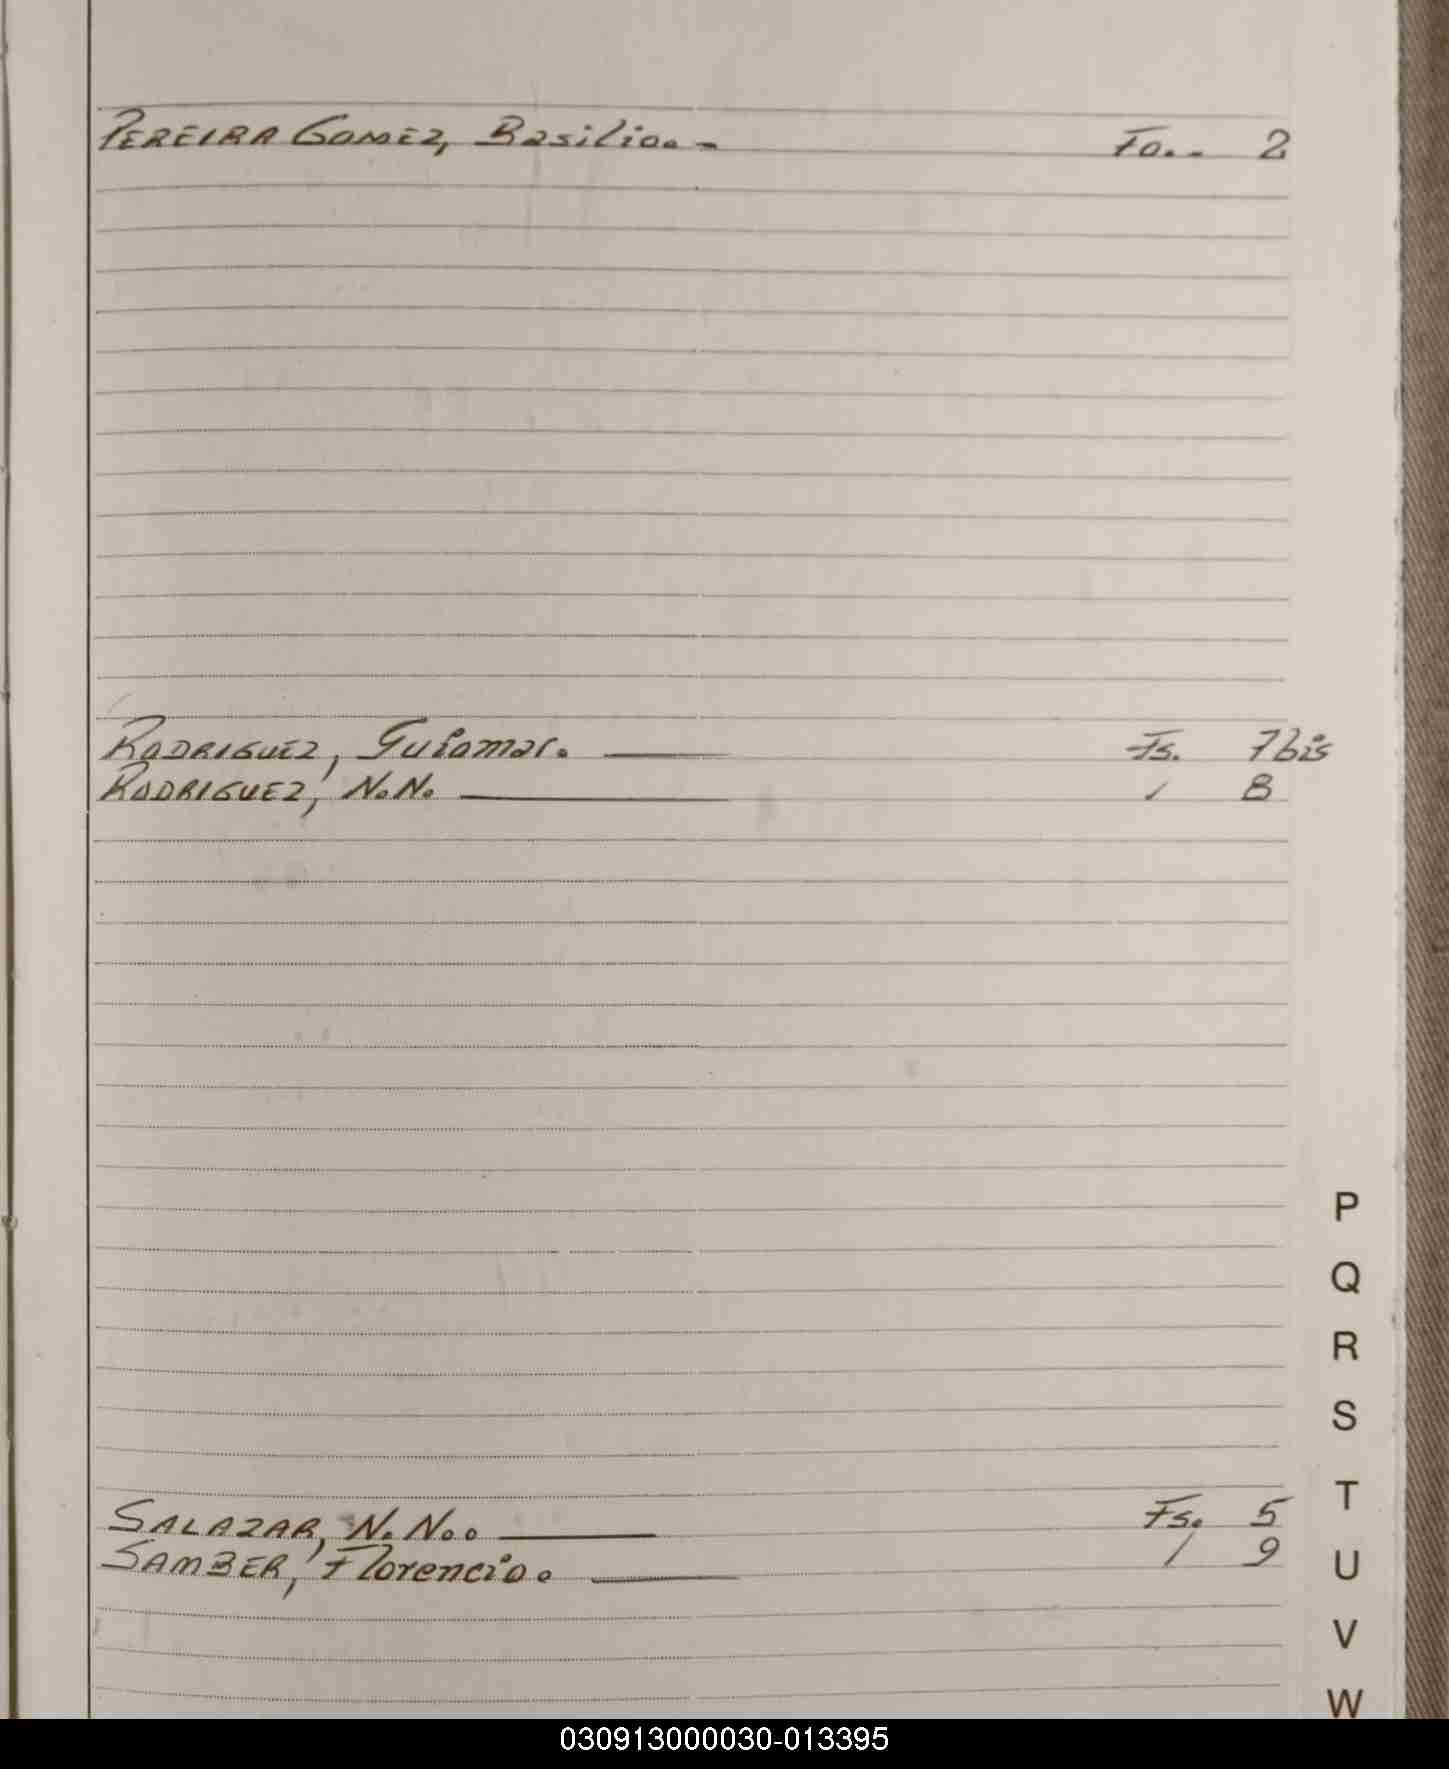 PEREIRA GOMEZ, Basilio.- Fo.- 2
RODRIGUEZ, Guiomar. — Fs. 7bis
RODRIGUEZ, N.N. — / 8
SALAZAR, N.N.. — Fs. 5
SAMBER, Florencio. — / 9
P
Q
R
S
T
U
V
W
030913000030-013395